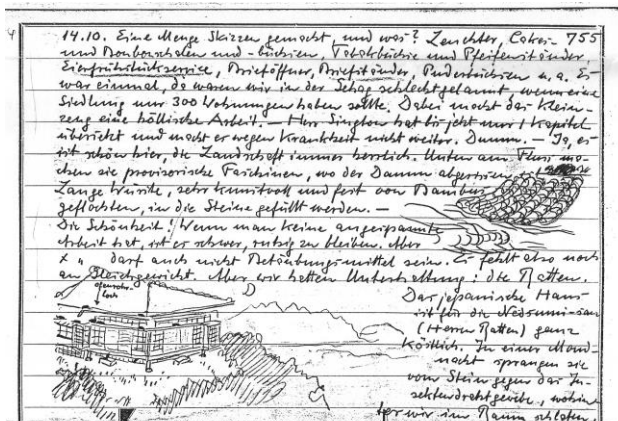 14.10. Eine Menge Skizzen gemacht, und was? Leuchter, Cakes- 755
und Bonbonschalen und -büchsen, Tabakbüchse und Pfeifenständer,
Eierfrühstückservice, Brieföffner, Briefständer, Puderbüchsen u. a. Es
war einmal, da waren wir in der Gehag schlecht gelaunt, wenn eine
Siedlung nur 300 Wohnungen haben sollte. Dabei macht das Klein-
zeug eine höllische Arbeit. – Herr Sington hat bis jetzt nur 1 Kapitel
übersetzt und macht es wegen Krankheit nicht weiter. Dumm. – Ja, es
ist schön hier, die Landschaft immer herrlich. Unten am Fluss ma-
chen sie provisorische Faschinen, wo der Damm abgerissen ist
Lange Würste, sehr kunstvoll und fest von Bambus
geflochten, in die Steine gefüllt werden. –
Die Schönheit! Wenn man keine angespannte
Arbeit hat, ist es schwer, ruhig zu bleiben. Aber
x " darf auch nicht Betäubungsmittel sein. Es fehlt also noch
an Gleichgewicht. Aber wir hatten Unterhaltung: die Ratten.
loch
Das japanische Haus
ist für die Nedsumi-san
(Herren Ratten) ganz
köstlich. In einer Mond-
nacht sprangen sie
vom Stein gegen das In-
sektendrahtgewebe, wohin-
ter wir im Raum schliefen.